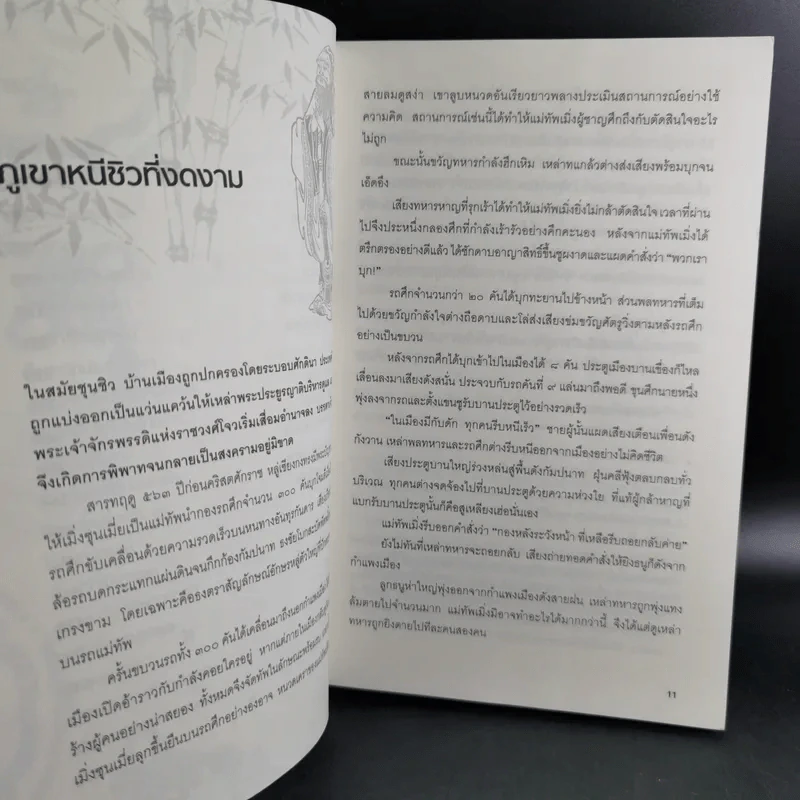 ภูเขาหนีชิวที่งดงาม
ในสมัยชุนชิว บ้านเมืองถูกปกครองโดยระบอบศักดินา
ถูกแบ่งออกเป็นแว่นแคว้นให้เหล่าพระประยูรญาติบริหารดูแล
พระเจ้าจักรพรรดิแห่งราชวงศ์โจวเริ่มเสื่อมอำนาจลง
จึงเกิดการพิพาทจนกลายเป็นสงครามอยู่มิขาด
สารทฤดู ๕๖๓ ปีก่อนคริสตศักราช
ให้เมิ่งซุนเมี่ยเป็นแม่ทัพนำกองรถศึกจำนวน ๓๐๐ คัน
รถศึกขับเคลื่อนด้วยความรวดเร็วบนหนทางอันทุรกันดาร
ล้อรถบดกระแทกแผ่นดินจนกึกก้องกัมปนาท
เกรงขาม โดยเฉพาะคือธงตราสัญลักษณ์อักษรหลู่ตัวใหญ่
บนรถแม่ทัพ
ครั้นขบวนรถทั้ง ๓๐๐ คันได้เคลื่อนมาถึงนอกกำแพงเมือง
เมืองเปิดอ้าราวกับกำลังคอยใครอยู่ หากแต่ภายในเมือง
ร้างผู้คนอย่างน่าสยอง ทั้งหมดจึงจัดทัพในลักษณะพร้อมรบ
เมิ่งซุนเมี่ยลุกขึ้นยืนบนรถศึกอย่างองอาจ
สายลมดูสง่า เขาลูบหนวดอันเรียวยาวพลางประเมินสถานการณ์อย่างใช้
ความคิด สถานการณ์เช่นนี้ได้ทำให้แม่ทัพเมิ่งผู้ชาญศึกถึงกับตัดสินใจอะไร
ไม่ถูก
ขณะนั้นขวัญทหารกำลังฮึกเหิม เหล่าทแกล้วต่างส่งเสียงพร้อมบุกจน
เอ็ดอึง
เสียงทหารหาญที่รุกเร้าได้ทำให้แม่ทัพเมิ่งยิ่งไม่กล้าตัดสินใจ เวลาที่ผ่าน
ไปจึงประหนึ่งกลองศึกที่กำลังเร้ารัวอย่างคึกคะนอง หลังจากแม่ทัพเมิ่งได้
ตรึกตรองอย่างดีแล้ว ได้ชักดาบอาญาสิทธิ์ขึ้นชูผงาดและแผดคำสั่งว่า "พวกเรา
บุก!"
รถศึกจำนวนกว่า ๒๐ คันได้บุกทะยานไปข้างหน้า ส่วนพลทหารที่เต็ม
ไปด้วยขวัญกำลังใจต่างถือดาบและโล่ส่งเสียงข่มขวัญศัตรูวิ่งตามหลังรถศึก
อย่างเป็นขบวน
หลังจากรถศึกได้บุกเข้าไปในเมืองได้ ๘ คัน ประตูเมืองบานเขื่องก็ไหล
เลื่อนลงมาเสียงดังสนั่น ประจวบกับรถคันที่ ๙ แล่นมาถึงพอดี ขุนศึกนายหนึ่ง
พุ่งลงจากรถและตั้งแขนชูรับบานประตูไว้อย่างรวดเร็ว
"ในเมืองมีกับดัก ทุกคนรีบหนีเร็ว" ชายผู้นั้นแผดเสียงเตือนเพื่อนดัง
กังวาน เหล่าพลทหารและรถศึกต่างรีบหนีออกจากเมืองอย่างไม่คิดชีวิต
เสียงประตูบานใหญ่ร่วงหล่นสู่พื้นดังกัมปนาท ฝุ่นคลีฟุ้งตลบกลบทั่ว
บริเวณ ทุกคนต่างจดจ้องไปที่บานประตูด้วยความห่วงใย ที่แท้ผู้กล้าหาญที่
แบกรับบานประตูนั้นก็คือสูเหลียงเฮ่อนั่นเอง
แม่ทัพเมิ่งรีบออกคำสั่งว่า "กองหลังระวังหน้า ที่เหลือรีบถอยกลับค่าย"
ยังไม่ทันที่เหล่าทหารจะถอยกลับ เสียงถ่ายทอดคำสั่งให้ยิงธนูก็ดังจาก
กำแพงเมือง
ลูกธนูห่าใหญ่พุ่งออกจากกำแพงเมืองดังสายฝน เหล่าทหารถูกพุ่งแทง
ล้มตายไปจำนวนมาก แม่ทัพเมิ่งมิอาจทำอะไรได้มากกว่านี้ จึงได้แต่ดูเหล่า
ทหารถูกยิงตายไปทีละคนสองคน
11